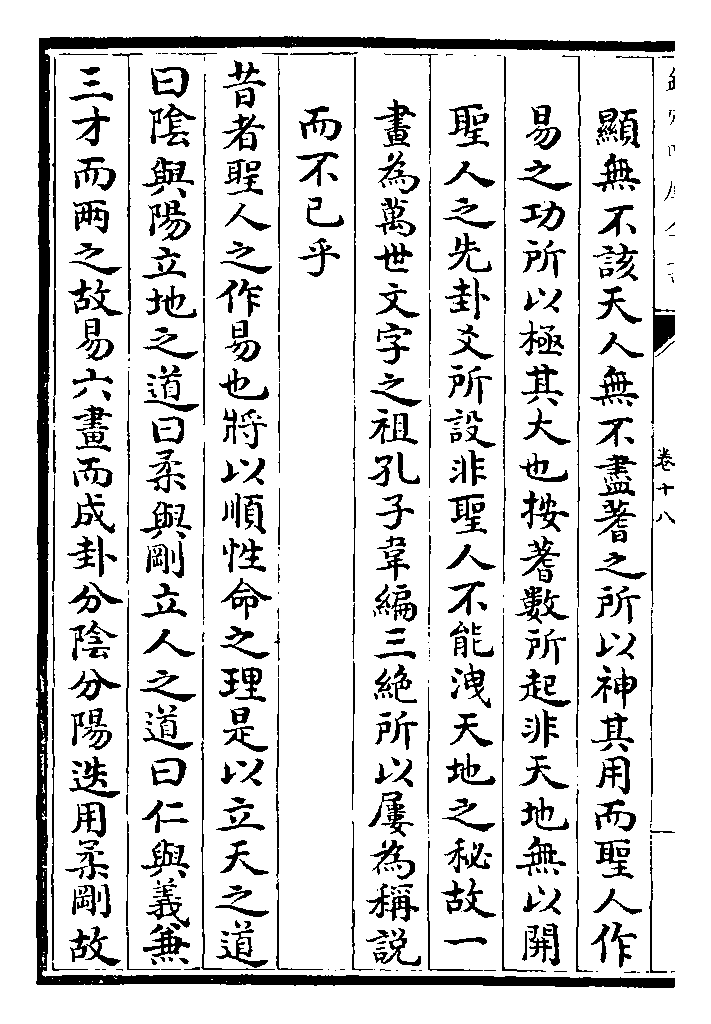 卷十八
顯無不該天人無不盡蓍之所以神其用而聖人作
易之功所以極其大也按蓍數所起非天地無以開
聖人之先卦爻所設非聖人不能洩天地之秘故一
畫為萬世文字之祖孔子韋編三絶所以屢為稱説
而不已乎
昔者聖人之作易也將以順性命之理是以立天之道
曰陰與陽立地之道曰柔與剛立人之道曰仁與義兼
三才而兩之故易六畫而成卦分陰分陽迭用柔剛故